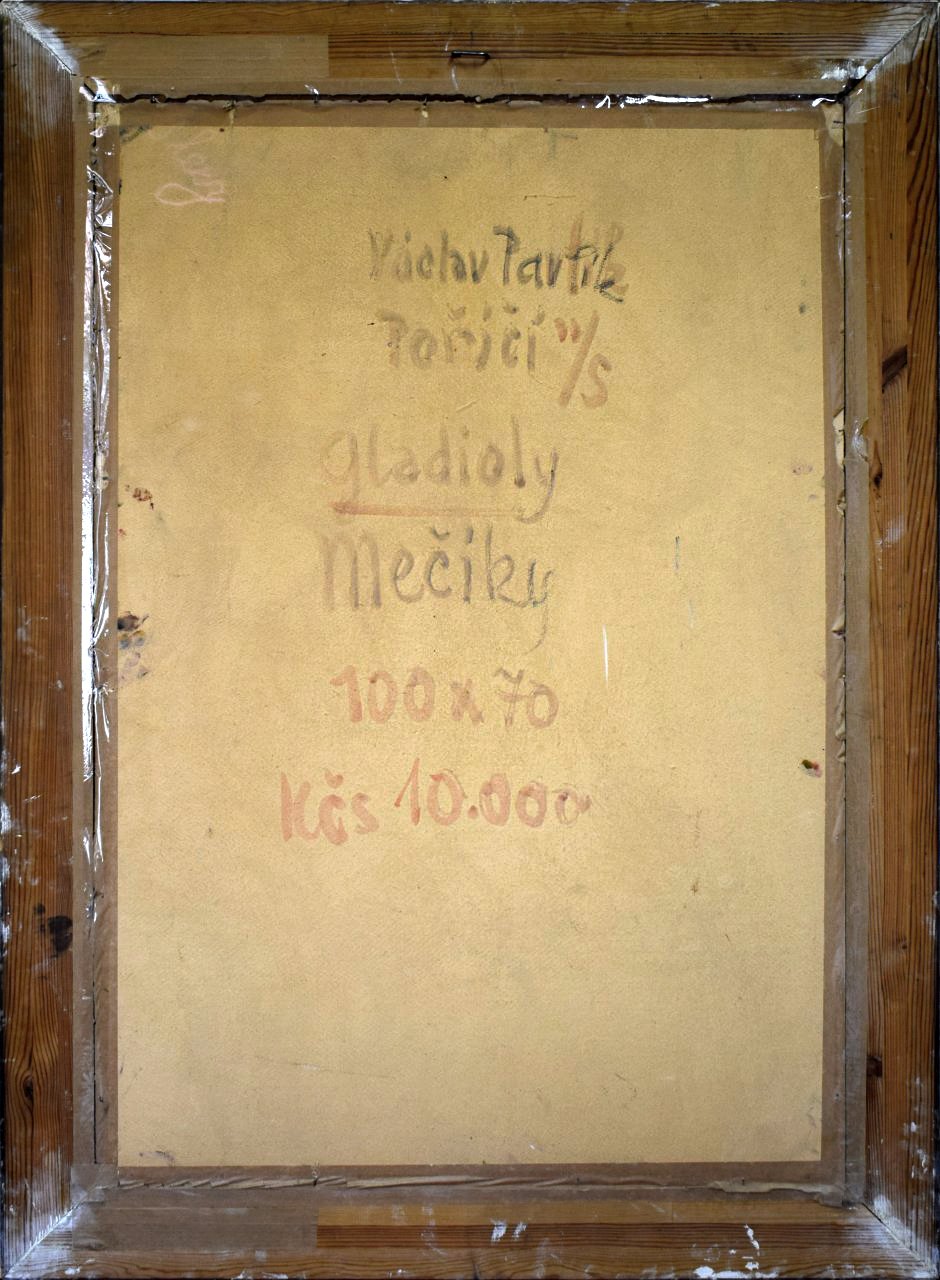 Václav Pavlík
Poříčí n/S
Gladioly
Mečíky
100 x 70
Kčs 10.000